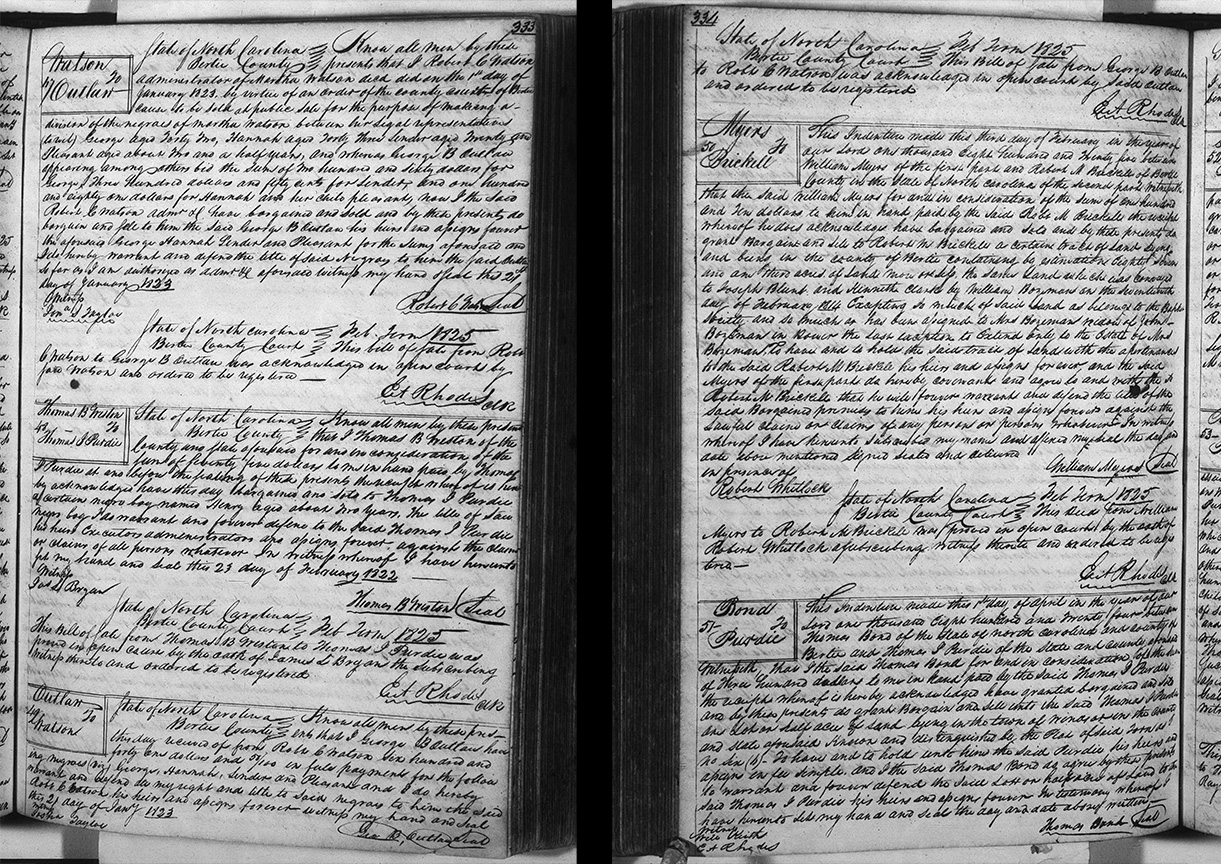 333
Watson
47 To
Outlaw
State of North Carolina Know all men by these
Bertie County presents that I Robert C Watson
administrator of Martha Watson decd did on the 1st day of
January 1823 by virtue of an order of the county court of Bertie
cause to be sold at public sale for the purpose of making a
division of the negroes of Martha Watson between her legal representatives
(to wit) George aged Forty Two, Hannah aged Forty Three Linder aged Twenty and
Pleasant aged about Two and a half years, and whereas George B Outlaw
appearing among others bid the Sum of Two hundred and Sixty dollars for
George, Three Hundred dollars and fifty cents for Linder and one hundred
and eighty one dollars for Hannah and her child pleasant, now I the said
Robert C Watson admr &c have bargained and Sold and by these presents do
bargain and sell to him the Said George B Outlaw his heirs and assigns forever
the aforesaid George Hannah Linder and Pleasant for the Sums aforesaid and
I do hereby warrant and defend the title of said Negroes to him the said Outlaw
so far as I am authorized as admr &c aforesaid witness my hand & seal this 2d
day of January 1823
Witness
Jona S Taylor
Robert C Watson Seal
State of North Carolina Feb Term 1825
Bertie County Court This bill of Sale from Robt
C Watson to George B Outlaw was acknowledged in open court by
said Watson and ordered to be registered
E A Rhodes Clk
Thomas B Weston
48 To
Thomas I Purdie
State of North Carolina Know all men by these presents
Bertie County that I Thomas B Weston of the
County and State aforesaid for and in consideration of the
Sum of Seventy five dollars to me in hand paid by Thomas
I Purdie at and before the sealing of these presents the receipt whereof is here
by acknowledged have this day bargained and sold to Thomas I Purdie
a certain negro boy named Henry aged about Two years. The title of said
negro boy I do warrant and forever defend to the said Thomas I Purdie
his heirs Executors administrators and assigns forever against the claim
or claims of all persons whatever In witness whereof I have hereunto
set my hand and seal this 23 day of February 1822
Witness
Jas S Bryan
Thomas B Weston Seal
State of North Carolina Feb Term 1825
Bertie County Court
This Bill of Sale from Thomas B Weston to Thomas I Purdie was
proved in open court by the oath of James S Bryan the subscribing
witness thereto and ordered to be registered
E A Rhodes Clk
Outlaw
49 To
Watson
State of North Carolina Know all men by these pres-
Bertie County ents that I George B Outlaw have
this day received of from Robt C Watson Six hundred and
forty one dollars and 50/100 in full payment for the follow
ing negroes (viz) George, Hannah, Linder and Pleasant and I do hereby
warrant and defend all my right and title to said negroes to him the said
Robt C Watson his heirs and assigns forever witness my hand and seal
this 2) day of Jany 1823
Witness
Jona S Taylor
Geo B, Outlaw Seal
334
State of North Carolina Feb Term 1825
Bertie County Court This Bill of Sale from George B Outlaw
to Robt C Watson was acknowledged in open court by said Outlaw
and ordered to be registered
E A Rhodes Clk
Myers
50 To
Brickell
This Indenture made this third day of February in the year of
our Lord one thousand Eight Hundred and Twenty five between
William Myers of the first part and Robert M Brickell of Bertie
County in the State of North Carolina of the second part Witnesseth
that the said William Myers for and in consideration of the Sum of one hundred
and Ten dollars to him in hand paid by the said Robt M Brickell the receipt
whereof he does acknowledge have bargained and sold and by these presents do
grant Bargain and Sell to Robert M Brickell a certain tract of Land Lying
and being in the county of Bertie containing by estimation Eighty Seven
and an Eth acres of Land more or less, the same Land which was conveyed
to Joseph Blunt and Kenneth Clark by William Bozman on the Seventeenth
day of February 1814 Excepting so much of said Land as belonged to the Baptist
Society and so much as has been assigned to Mrs Bozeman widow of John
Bozeman in Dower the last exception to Extend only to the Estate of Mrs
Bozeman, to have and to hold the said tract of Land with the apurtenances
to the said Robert M Brickell his heirs and assigns forever and the said
Myers of the first part do hereby covenant and agree to and with the sd
Robert M Brickell that he will forever warrant and defend the title of the
said Bargained premises to him his heirs and assigns forever against the
Lawful claim or claims of any person or persons whatever In witness
whereof I have hereunto subscribed my name and affixed my seal the day and
date above mentioned signed sealed and delivered
in presence of
Robert Whitlock
William Myers Seal
State of North Carolina Feb Term 1825
Bertie County Court This Deed from William
Myers to Robert M Brickell was proved in open court by the oath of
Robert Whitlock a subscribing witness thereto and ordered to be regis
tered
E A Rhodes Clk
Bond
51 To
Purdie
This Indenture made this 1st day of April in the year of our
Lord one thousand Eight Hundred and Twenty four between
Thomas Bond of the State of North Carolina and County of
Bertie and Thomas I Purdie of the State and County aforesaid
Witnesseth that I the said Thomas Bond for and in consideration of the sum
of Three Hundred dollars to me in hand paid by the said Thomas I Purdie
the receipt whereof is hereby acknowledged have granted bargained and sold
and by these presents do grant Bargain and sell unto the said Thomas I Purdie
one Lot or Half acre of Land lying in the town of Windsor in the County
and State aforesaid Known and distinguished by the Plat of said Town as
no Six (6) To have and to hold unto him the said Purdie his heirs and
assigns in fee simple, and I the said Thomas Bond do agree by these presents
to warrant and forever defend the said Lot or half acre of Land to the
said Thomas I Purdie his heirs and assigns forever In testimony whereof I
have hereunto set my hand and seal the day and date above written
Witness
E A Rhodes
Thomas Bond Seal